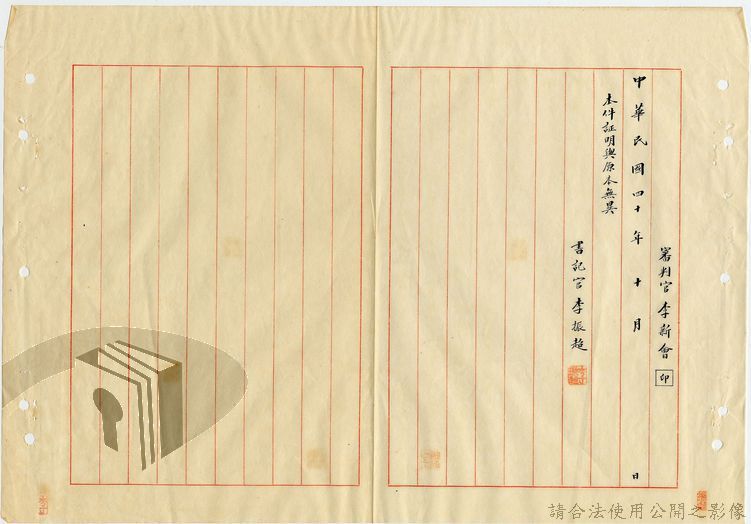 審判官 李新會 印
中華民國四十年十月 日
本件証明與原本無異
書記官 李振超
請合法使用公開之影像